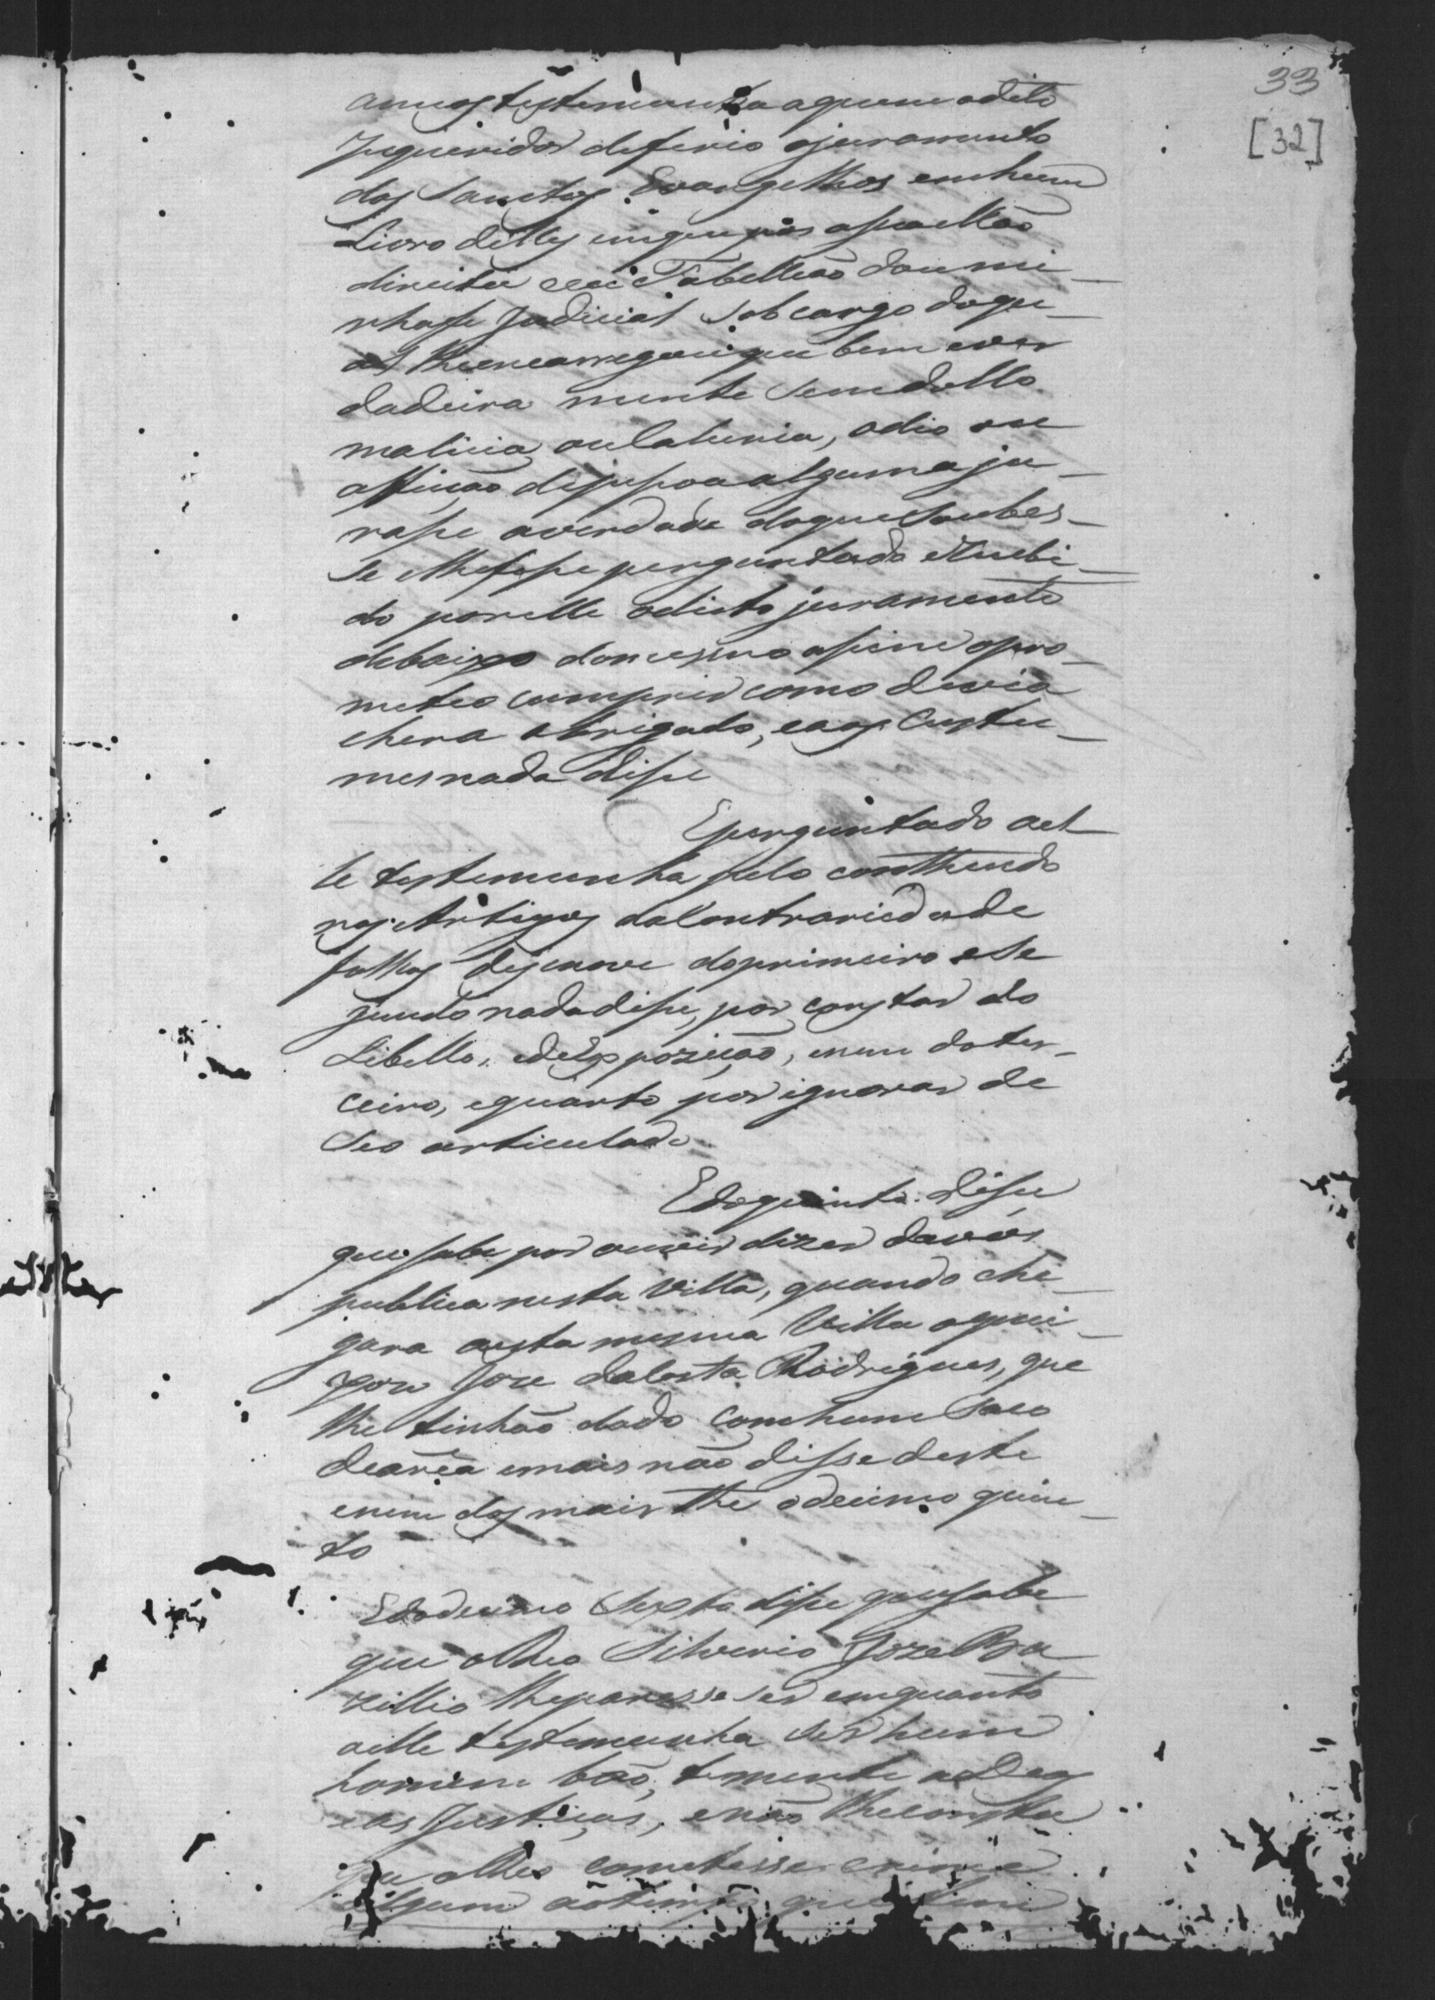 33
[32]
annos testemunha aquem odito
Inqueridor deferio ojuramento
dos Sanctos Evangelhos emhum
Livro delles emque pos asua Mão
direita eeu Tabellião doumi-
nhafe Judicial Sobcargo doqu-
al lheencarregou que bem ever
dadeira mente Semdollo
malicia, oulaturia, odio ou
affeição depessoa alguma ju-
rasse averdade doque Soubes-
se elhefosse perguntado eRecebi-
do porelle odicto juramento
debaixo domesmo assim opro-
meteo cumprir como devia
ehera obrigado, eaos Custu-
mesnada disse
Eperguntado ael-
le testemunha pelo conthiudo
nos Artigos daContrariedade
folhas desanove doprimeiro eSe
gundo nadadisse, por constar do
Libello, edeExpozição, enem doter-
ceiro, equarto por ignorar de
Seo articulado.
Edoquinto. disse
que sabe por ouvir dizer davós
publica nesta Villa, quando che-
gara aesta mesma Villa aquei-
xou Joze daCosta Rodrigues, que
lhe tinhão dado comhum Saco
deareia emais não disse deste
enem dos mais the odecimo quin-
to
Edodecimo Sexto disse quesabe
que oReo Silverio Joze Bra
zillio lheparesse ser emquanto
aelle testemunha Ser hum
homem bão, temente aDeos
eas Justiças, enão lheconsta
que oReo cometesse crime
algum aotempo que